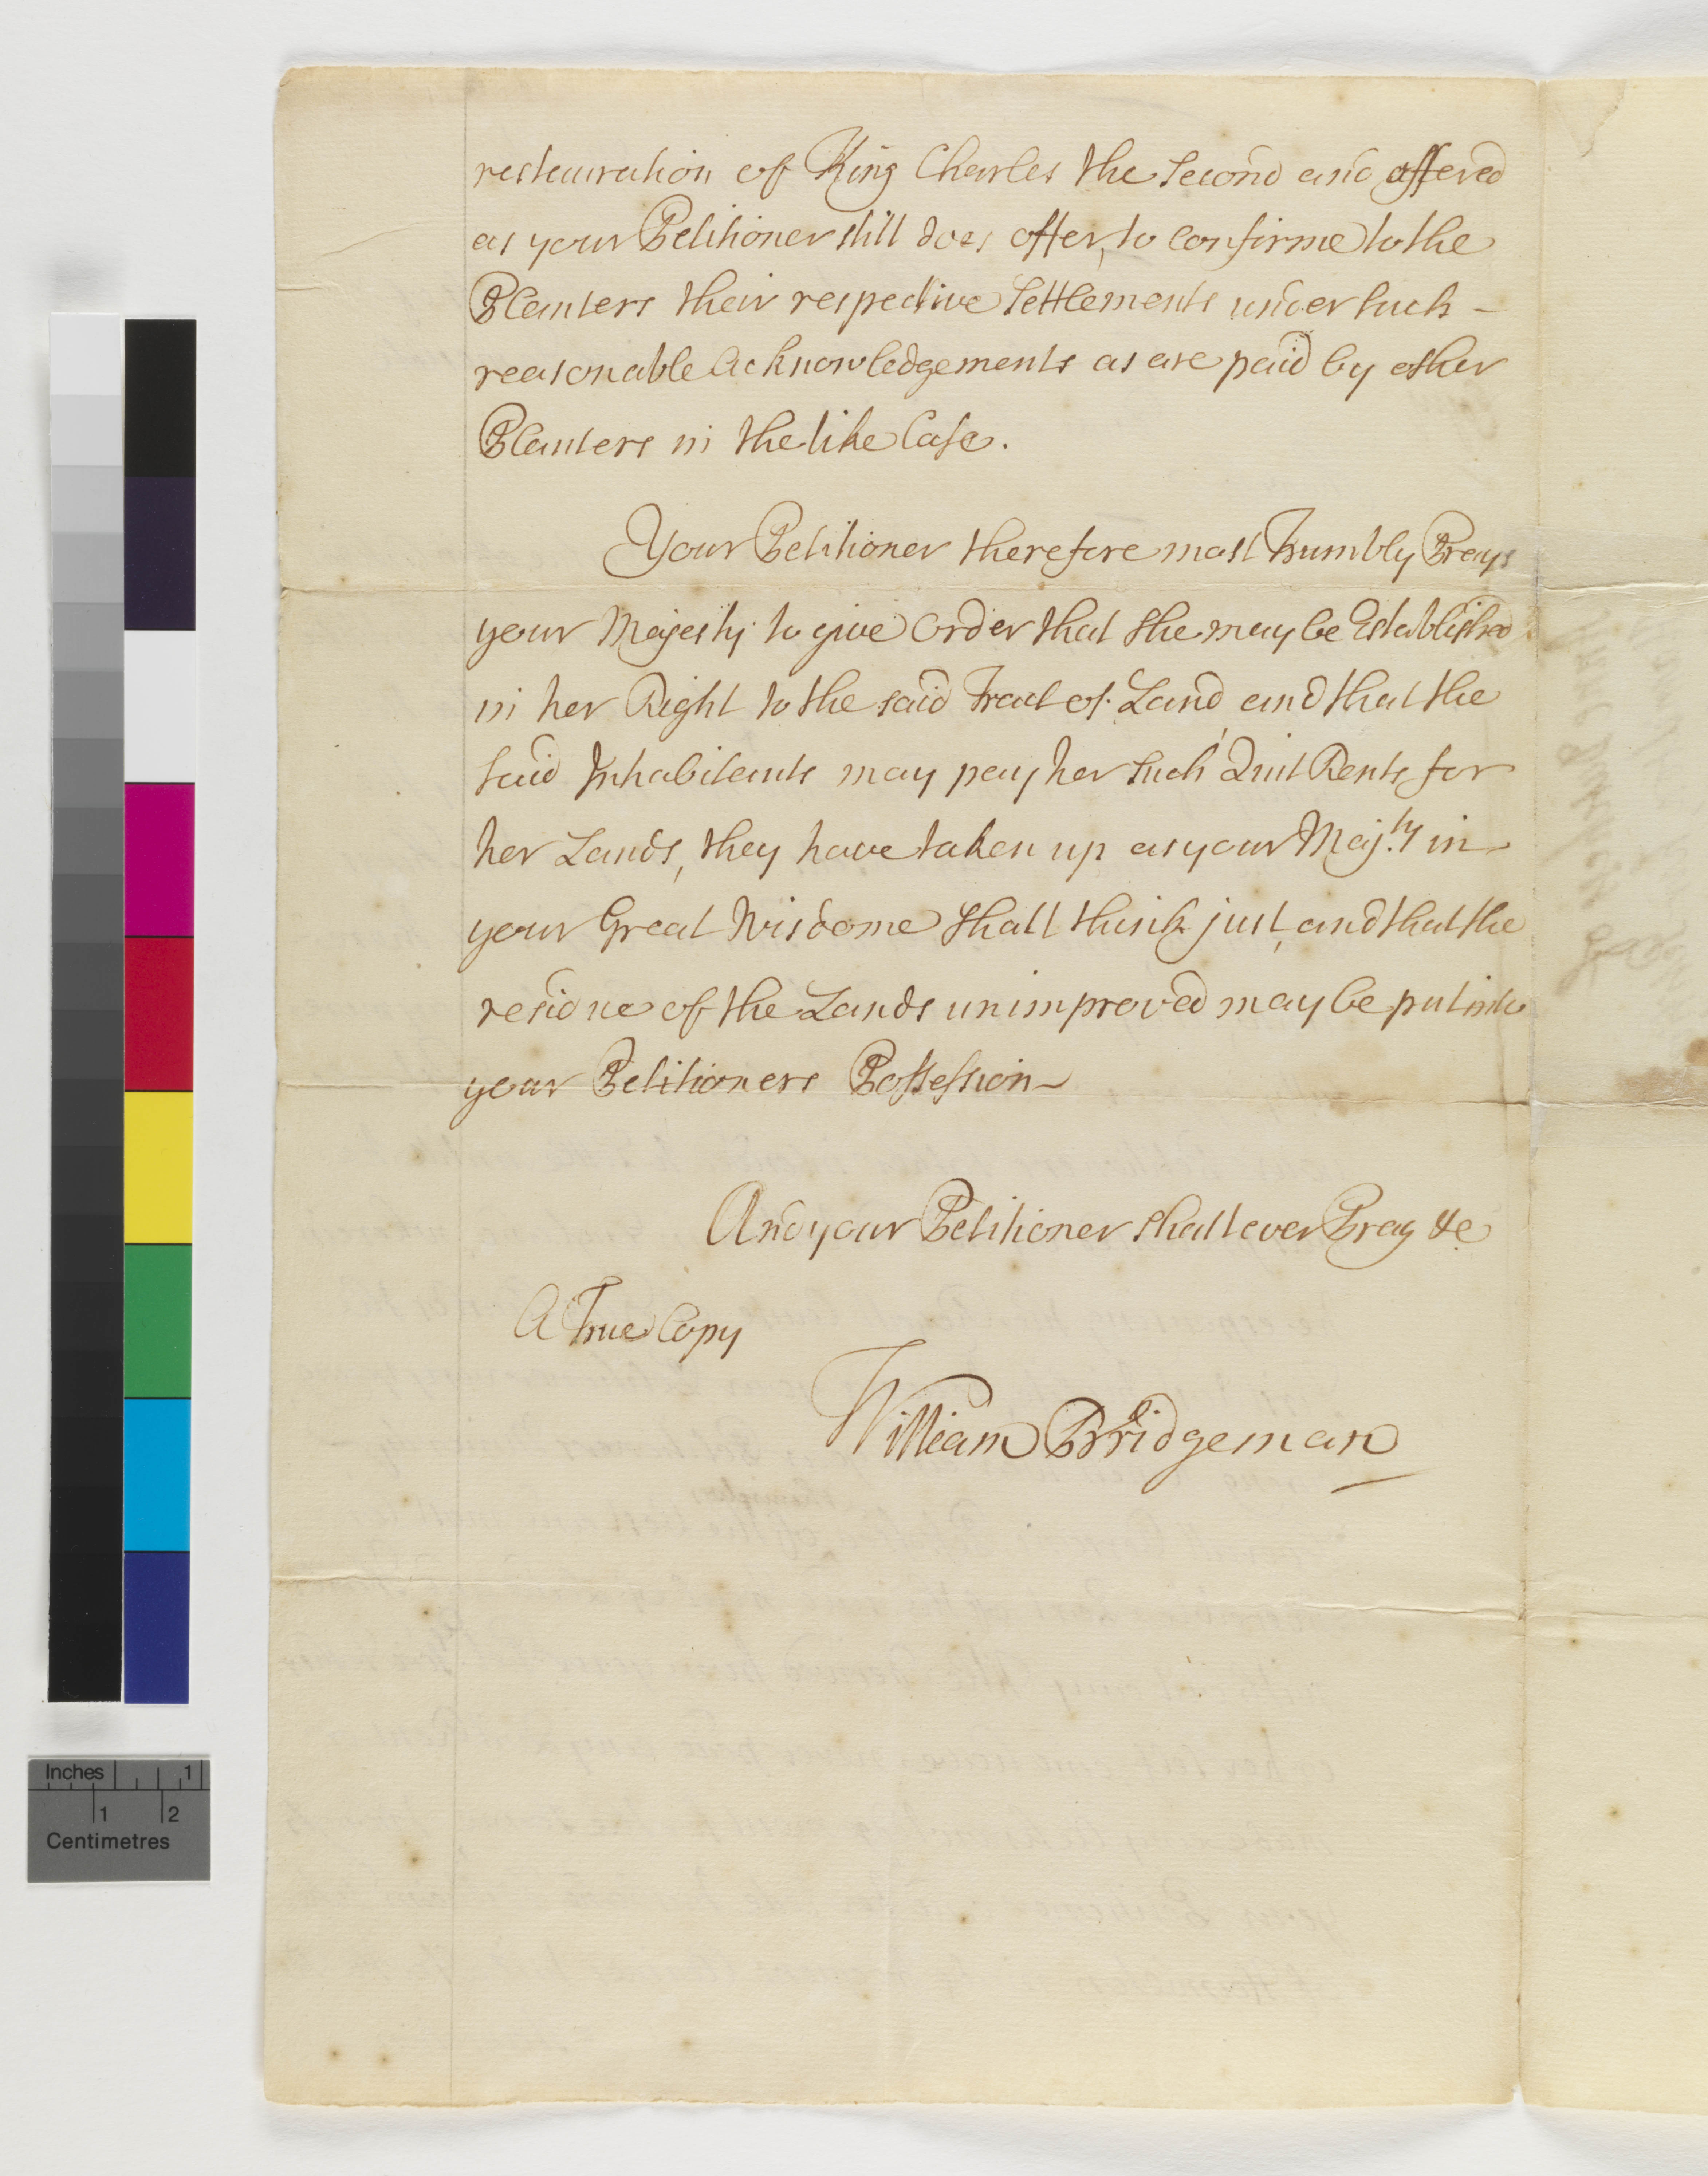 restauration of King Charles the Second and offered
as your Petitioner still does offer, to confirme to the
Planters their respective Settlements under such -
reasonable Acknowledgements as are paid by other
Planters in the like Case.
Your Petitioner therefore most humbly Prays
your Majesty to give Order that she may be Established
in her Right to the said Tract of Land, and that the
said Inhabitants may pay her such Quit Rents for
her Lands, they have taken up as your Maj.ty in
your Great Wisdome shall think just, and that the
residue of the Lands unimproved may be put into
your Petitioners Possession
And your Petitioner shall ever Pray &c
A True Copy
William Bridgeman
Inches 1
1 2
Centimetres